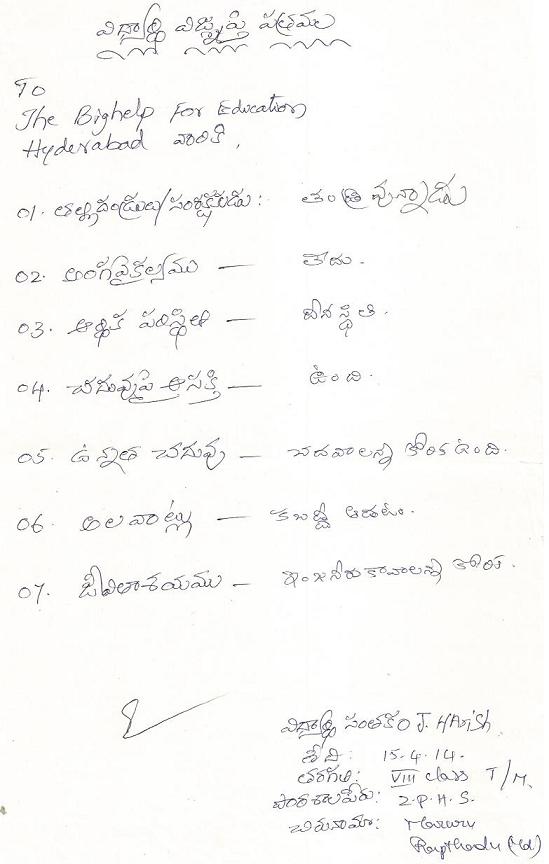 విద్యార్థి విజ్ఞప్తి పత్రము
To
The Bighelp For Education
Hyderabad వారికి,
01. తల్లిదండ్రులు/సంరక్షకుడు: తండ్రి వున్నాడు
02. అంగవైకల్యము — లేదు.
03. ఆర్థిక పరిస్థితి — దీనస్థితి.
04. చదువుపై ఆసక్తి — ఉంది.
05. ఉన్నత చదువు — చదవాలన్న కోరిక ఉంది.
06. అలవాట్లు — కబడ్డీ ఆడటం.
07. జీవితాశయము — ఇంజనీరు కావాలన్న కోరిక.
విద్యార్థి సంతకం J. HARish
తేది: 15.4.14.
తరగతి: VIII class T/M.
పాఠశాలపేరు: Z.P.H.S.
చిరునామా:
(Md)